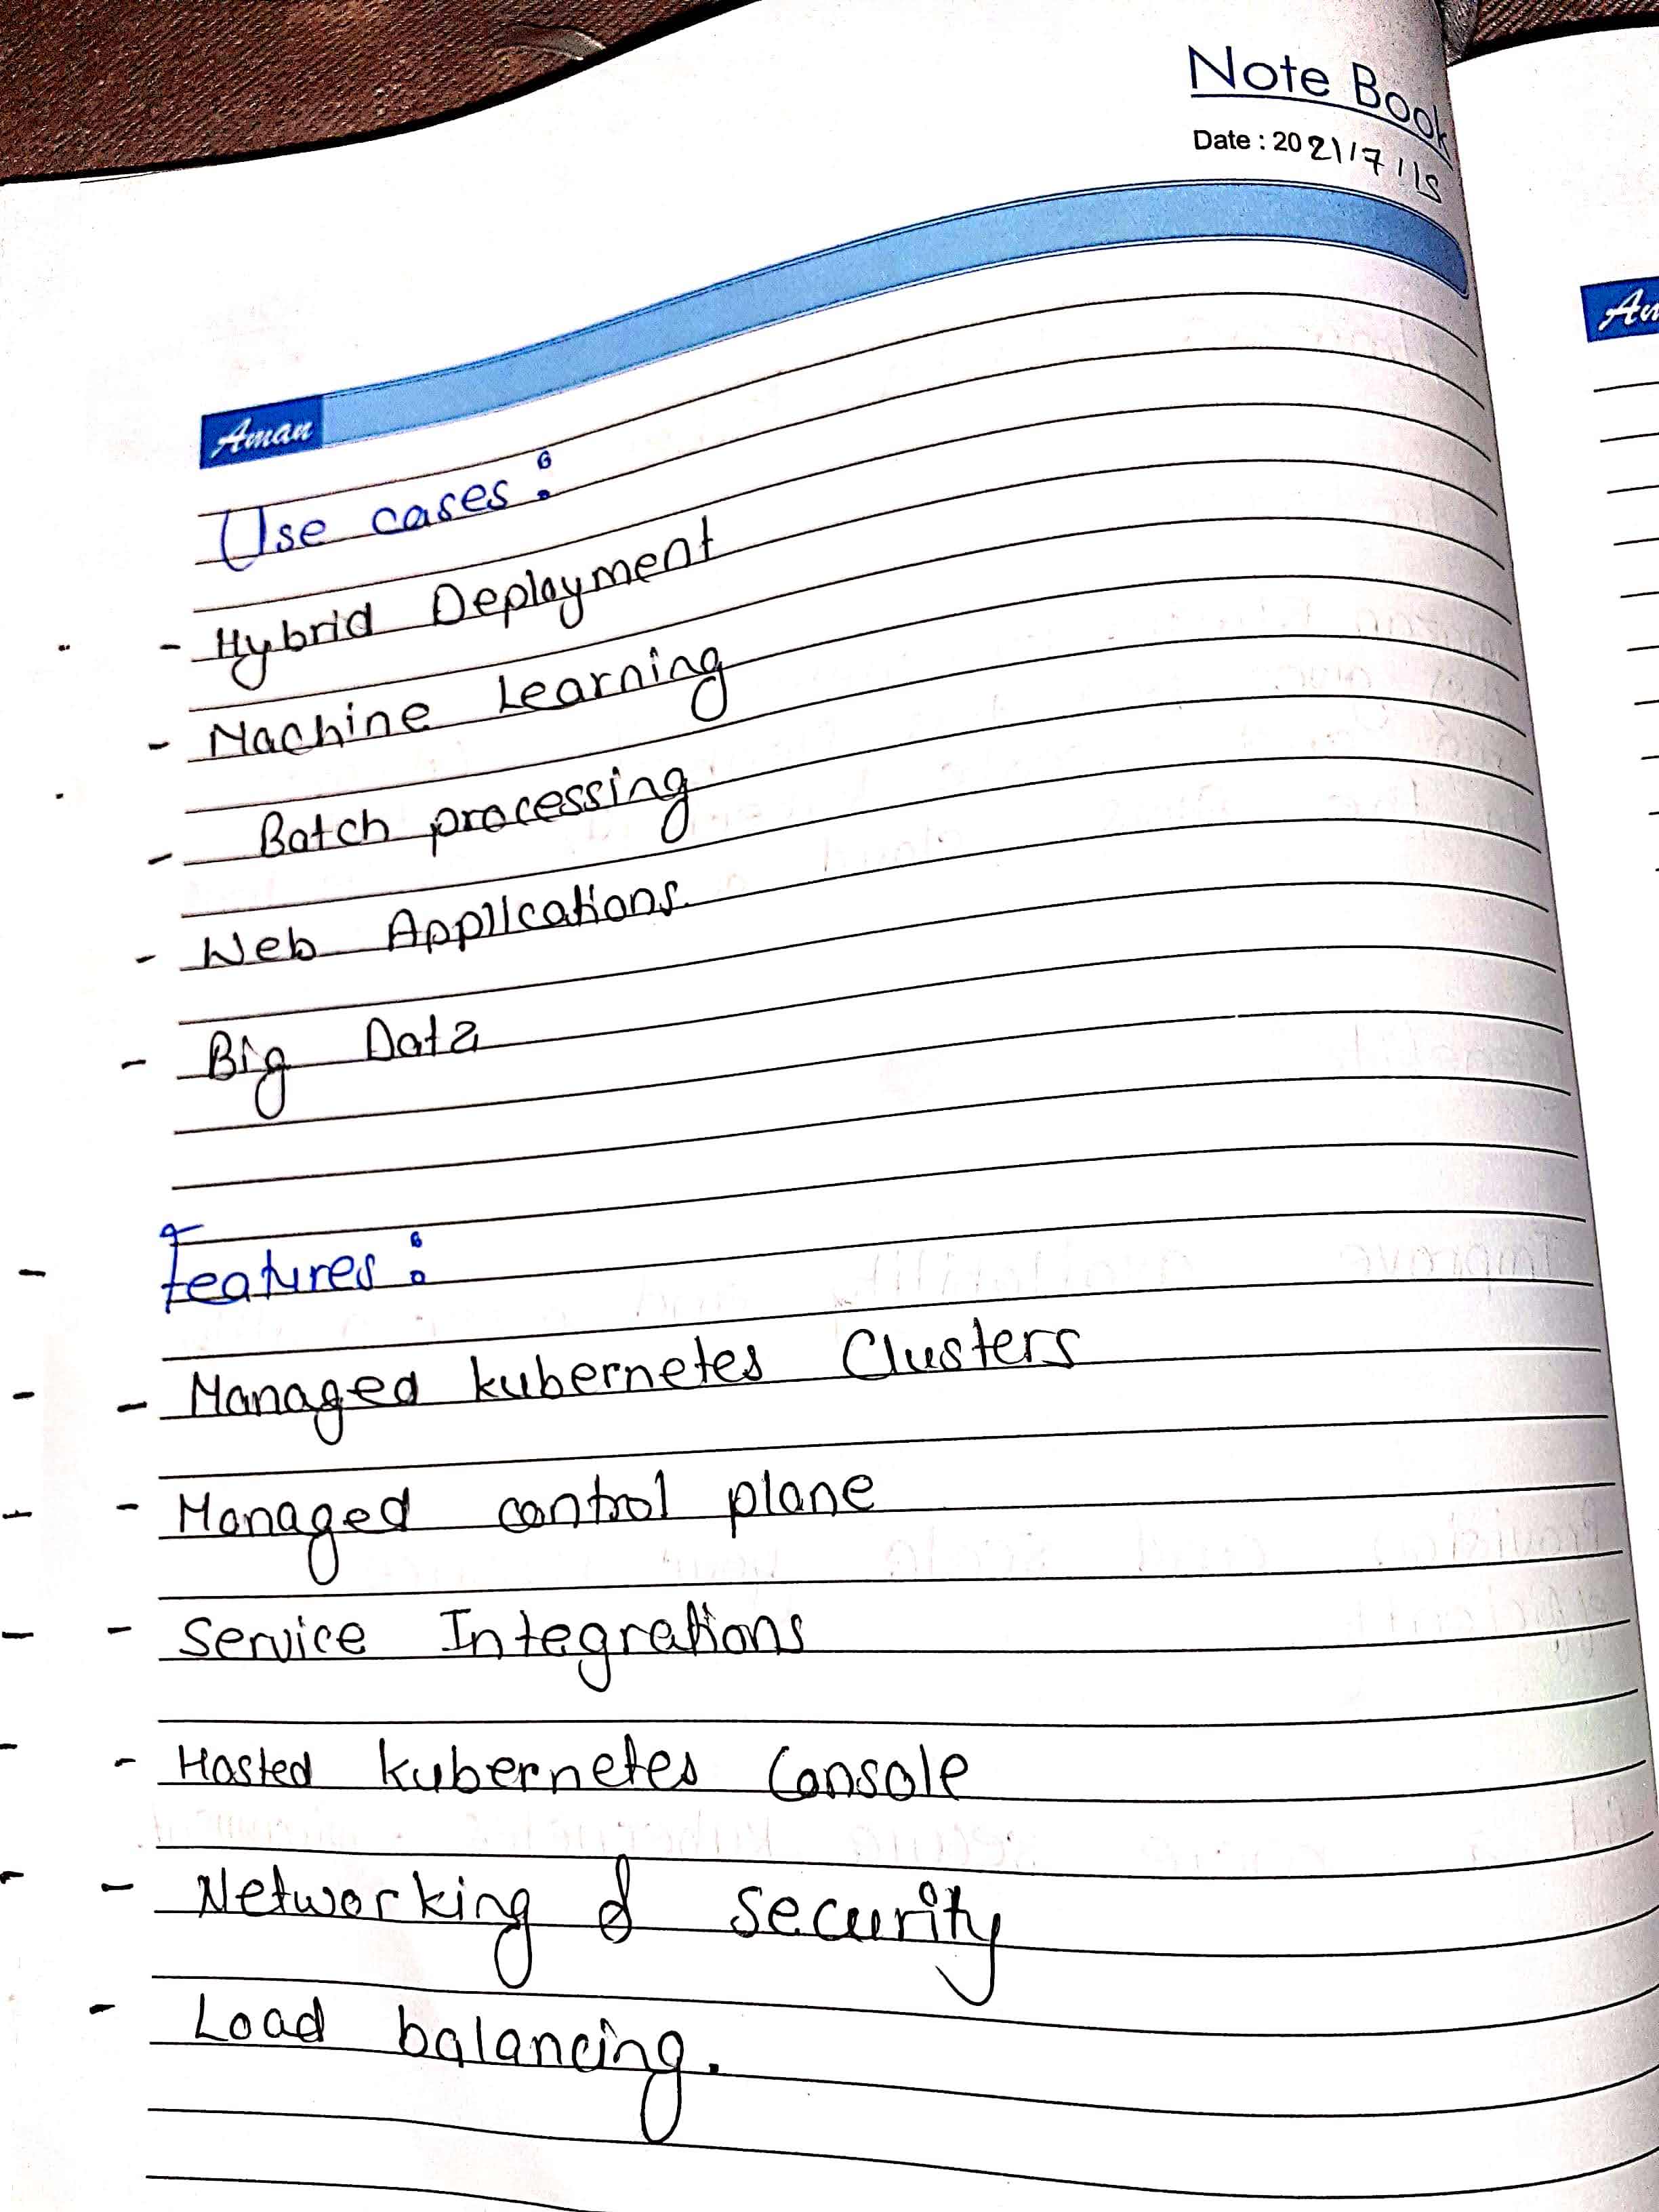 Note Book
Date : 2021/7/15
Aman
Use cases:
- Hybrid Deployment
- Machine Learning
- Batch processing
- Web Applications.
- Big Data
Features:
- Managed kubernetes Clusters
- Managed control plane
- Service Integrations
- Hosted kubernetes Console
- Networking & security
- Load balancing.